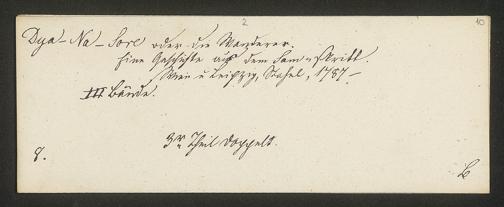 2
10
Dya-Na-Sore oder die Wanderer.
Eine Geschichte aus dem Sam-skritt.
Wien u Leipzig, Stahel, 1787-
III Bände.
3r Theil doppelt.
8.